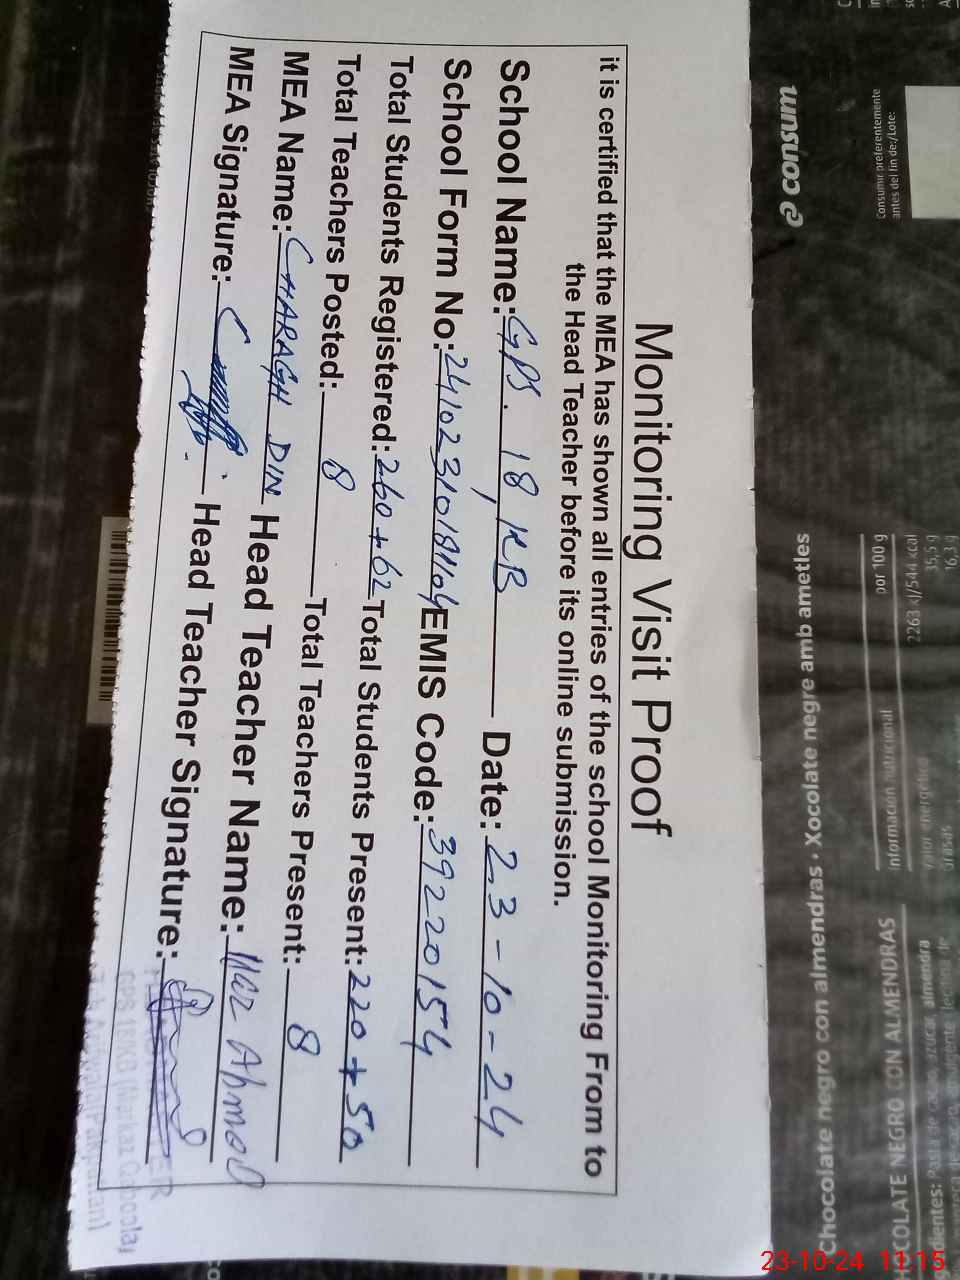 Monitoring Visit Proof
it is certified that the MEA has shown all entries of the school Monitoring From to
the Head Teacher before its online submission.
School Name: GPS. 18/KB Date: 23-10-24
School Form No: EMIS Code: 39220154
Total Students Registered: 260+62 Total Students Present: 220+50
Total Teachers Posted: 8 Total Teachers Present: 8
MEA Name: CHARAGH DIN Head Teacher Name: Ahmad
MEA Signature: Head Teacher Signature:
GPS 18/KB (Markaz
consum
Consumir preferentemente
antes del fin de:/Lote:
Chocolate negro con almendras • Xocolate negre amb ametles
por 100 g
2263 kJ/544 kcal
35,5 g
16,3 g
Información nutricional
Valor energético
Grasas
CHOCOLATE NEGRO CON ALMENDRAS
Pasta de cacao, azúcar, almendra
23-10-24 11:15